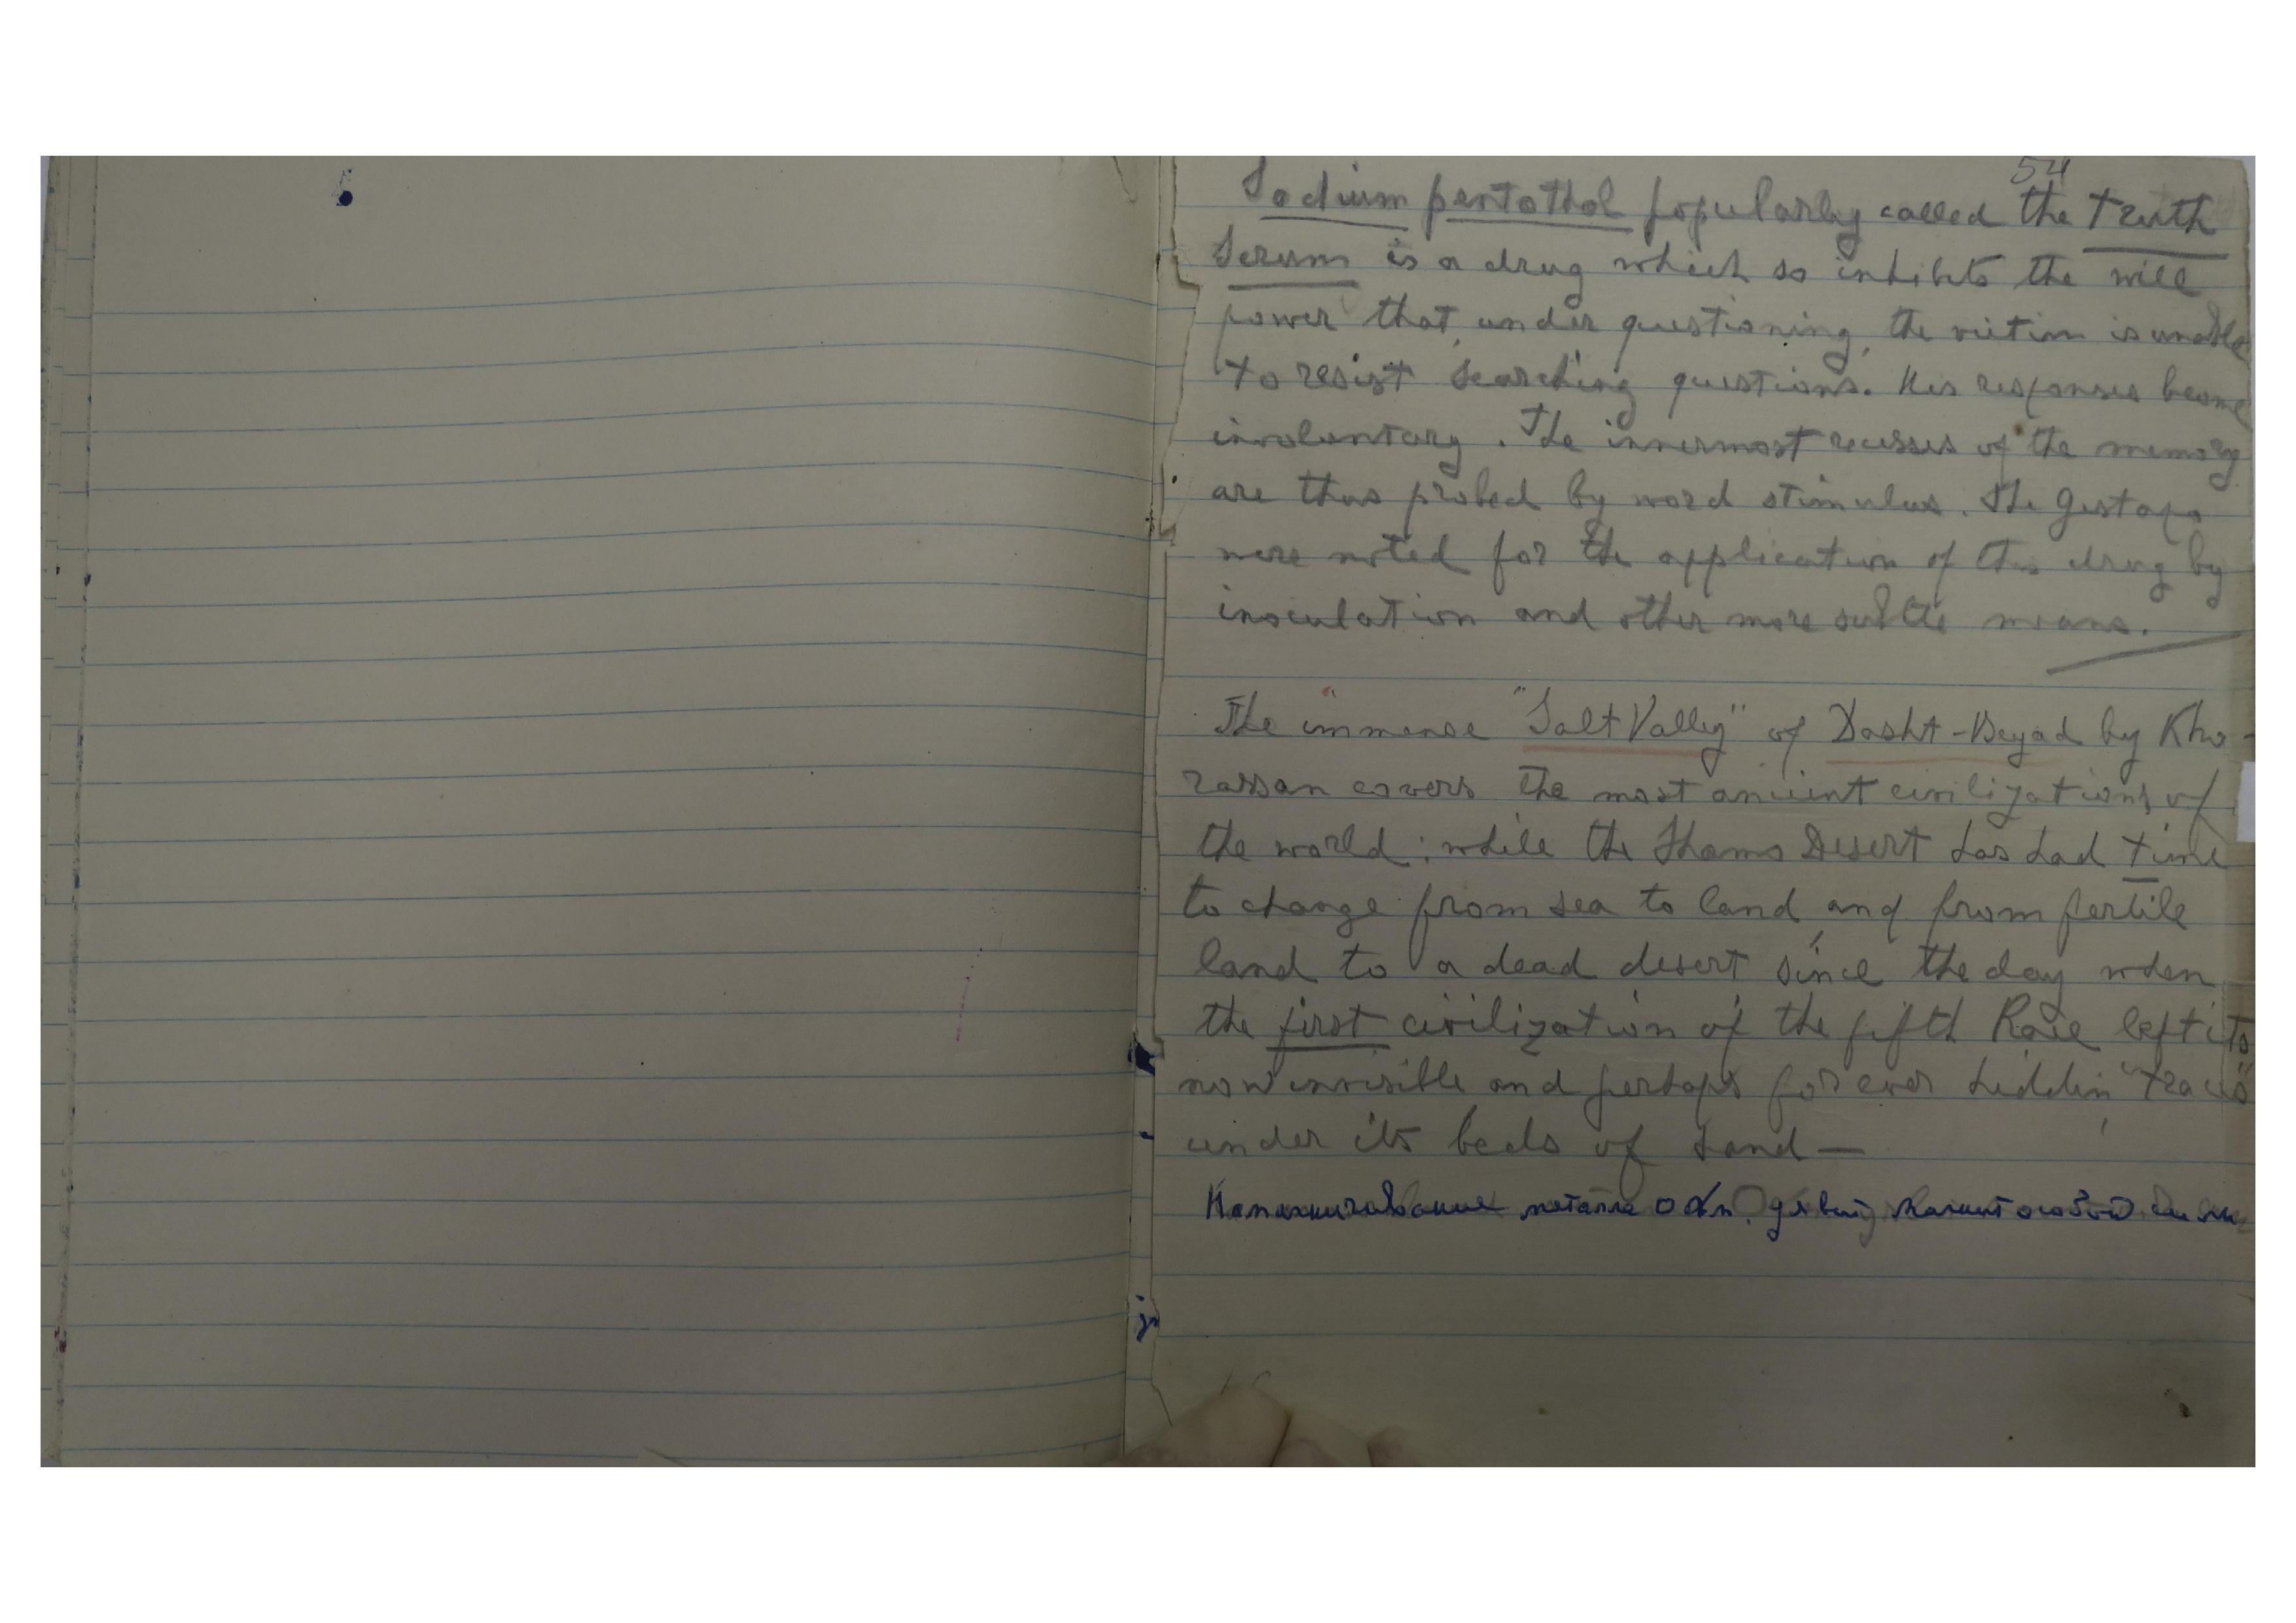 54
Sodium pentothol popularly called the truth
Serum is a drug which so inhibits the will
power that, under questioning, the victim is unable
to resist searching questions. His responses become
involuntary. The innermost recesses of the memory
are thus probed by word stimulus. The Gestapo
were noted for the application of this drug by
inoculation and other more subtle means.
The immense "Salt Valley" of Dasht-Beyad by Kho-
rassan covers the most ancient civilizations of
the world; while the Shamo Desert has had time
to change from sea to land, and from fertile
land to a dead desert since the day when
the first civilization of the fifth Race left its
now invisible and perhaps for ever hidden "traces"
under its beds of sand—